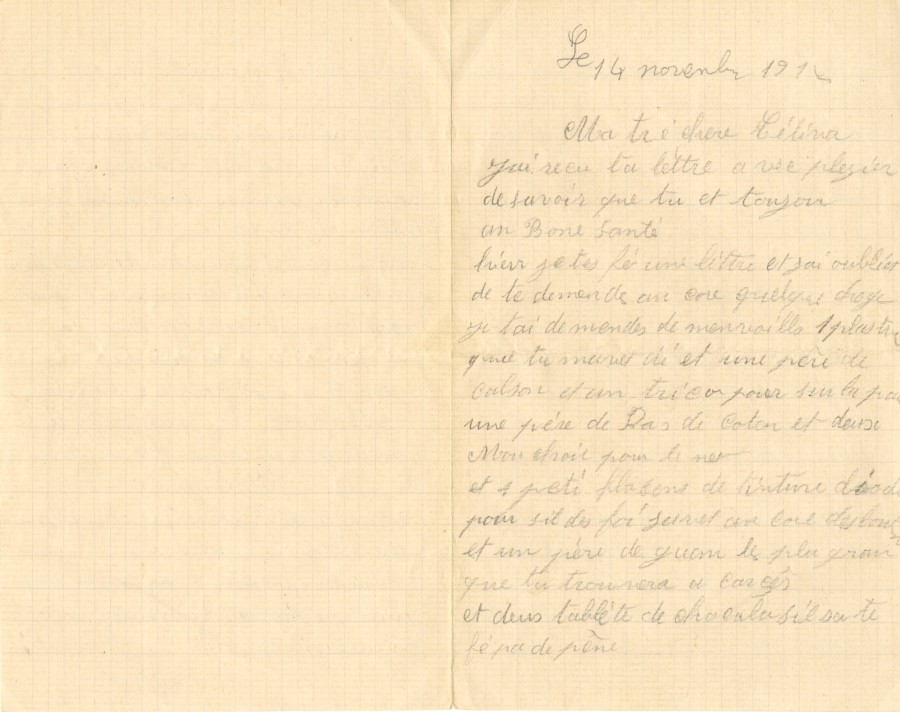 Le 14 novenbr 191
Ma tré chere Célina
j'ai recu ta lettre avec plezier
de savoir que tu et toujour
an Bone santé
hier je tes fé une lettre et jai oublier
de te demende an core quelque choze
je tai demendes de 1 plastr
que tu mares di et une père de
calson et un trico pour sur la pau
une père de Bas de Coton et deus
Mouchoir pour le ner
et 1 peti flacons de tinture diode
pour sit des foi an core des
et un père de guan les plu gran
que tu trouvera a Carcés
et deus tabléte de chocola si sa te
fé pa de pène